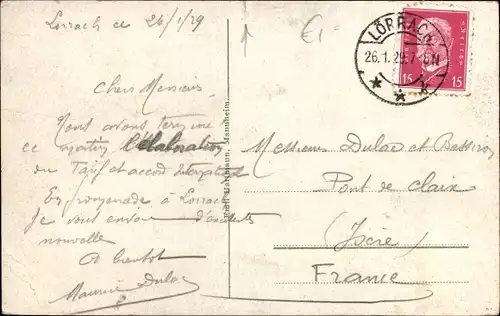 Lorrach ce 26/1/29
Chers Messieurs
Nous avons terminé
ce matin l'élaboration
du Tarif et accord International
En promenade à Lorrach
Je vous envoie d'excellentes
nouvelles
A bientot
Maurice Dulac
Mannheim.
LÖRRACH
26.1.29.7-8N
15 15
Messieurs Dulac et
Pont de Claix
(Isère)
France